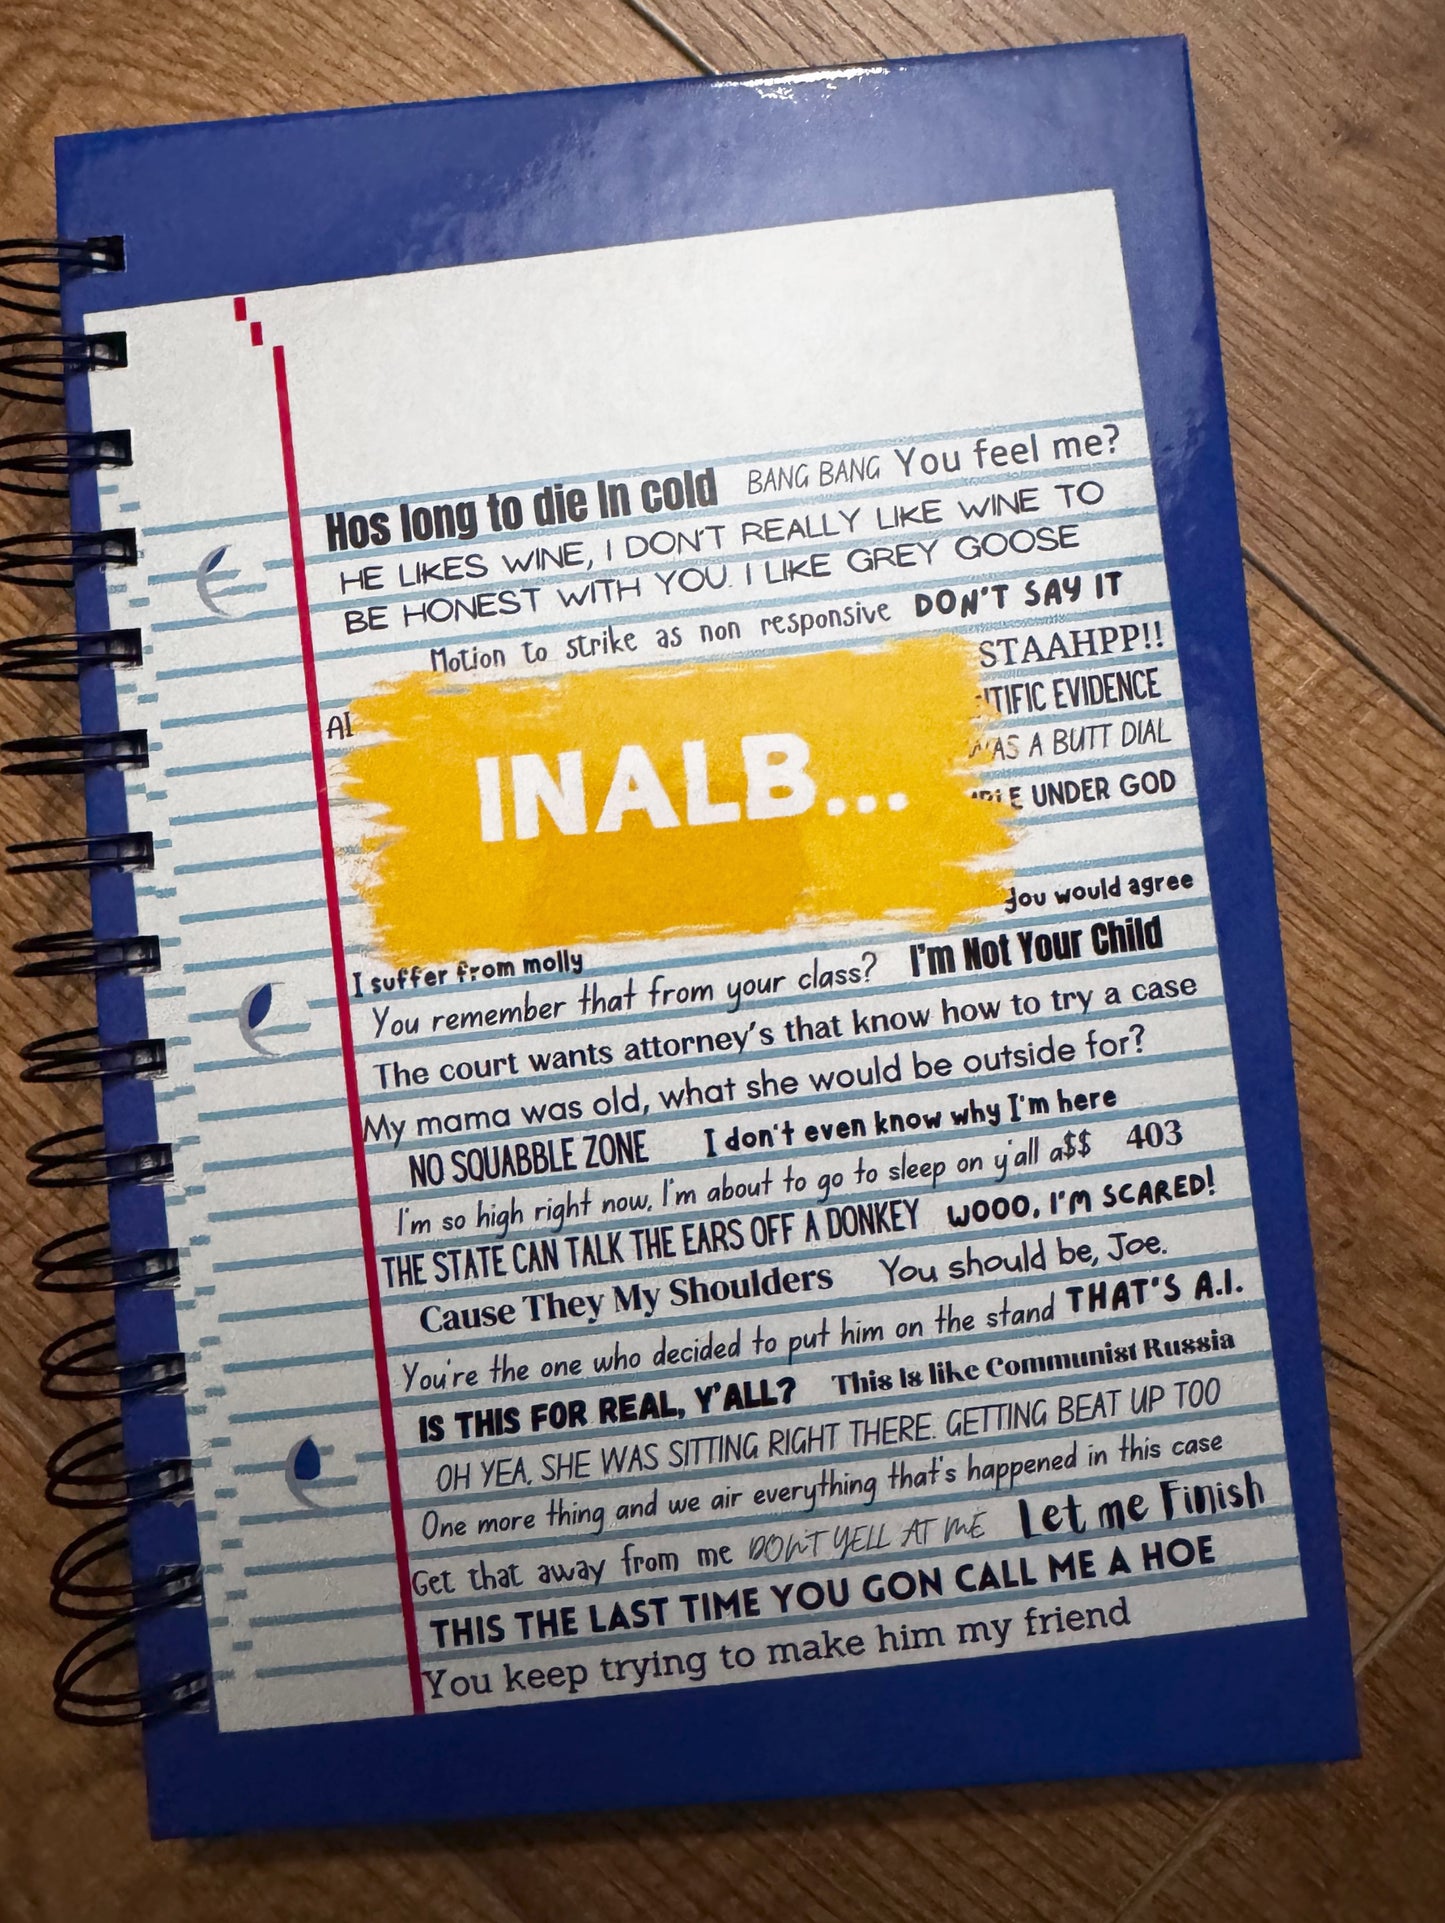 Hos long to die In cold BANG BANG You feel me?
HE LIKES WINE, I DON'T REALLY LIKE WINE TO
BE HONEST WITH YOU. I LIKE GREY GOOSE
Motion to strike as non responsive DON'T SAY IT
STAAHPP!!
TIFIC EVIDENCE
AI
AS A BUTT DIAL
INALB...
E UNDER GOD
you would agree
I suffer from molly
You remember that from your class? I'm Not Your Child
The court wants attorney's that know how to try a case
My mama was old, what she would be outside for?
NO SQUABBLE ZONE I don't even know why I'm here
I'm so high right now, I'm about to go to sleep on y'all a$$ 403
THE STATE CAN TALK THE EARS OFF A DONKEY WOOO, I'M SCARED!
Cause They My Shoulders You should be, Joe.
You're the one who decided to put him on the stand THAT'S A.I.
IS THIS FOR REAL, Y'ALL? This Is like Communist Russia
OH YEA, SHE WAS SITTING RIGHT THERE. GETTING BEAT UP TOO
One more thing and we air everything that's happened in this case
Get that away from me DON'T YELL AT ME Let me Finish
THIS THE LAST TIME YOU GON CALL ME A HOE
You keep trying to make him my friend